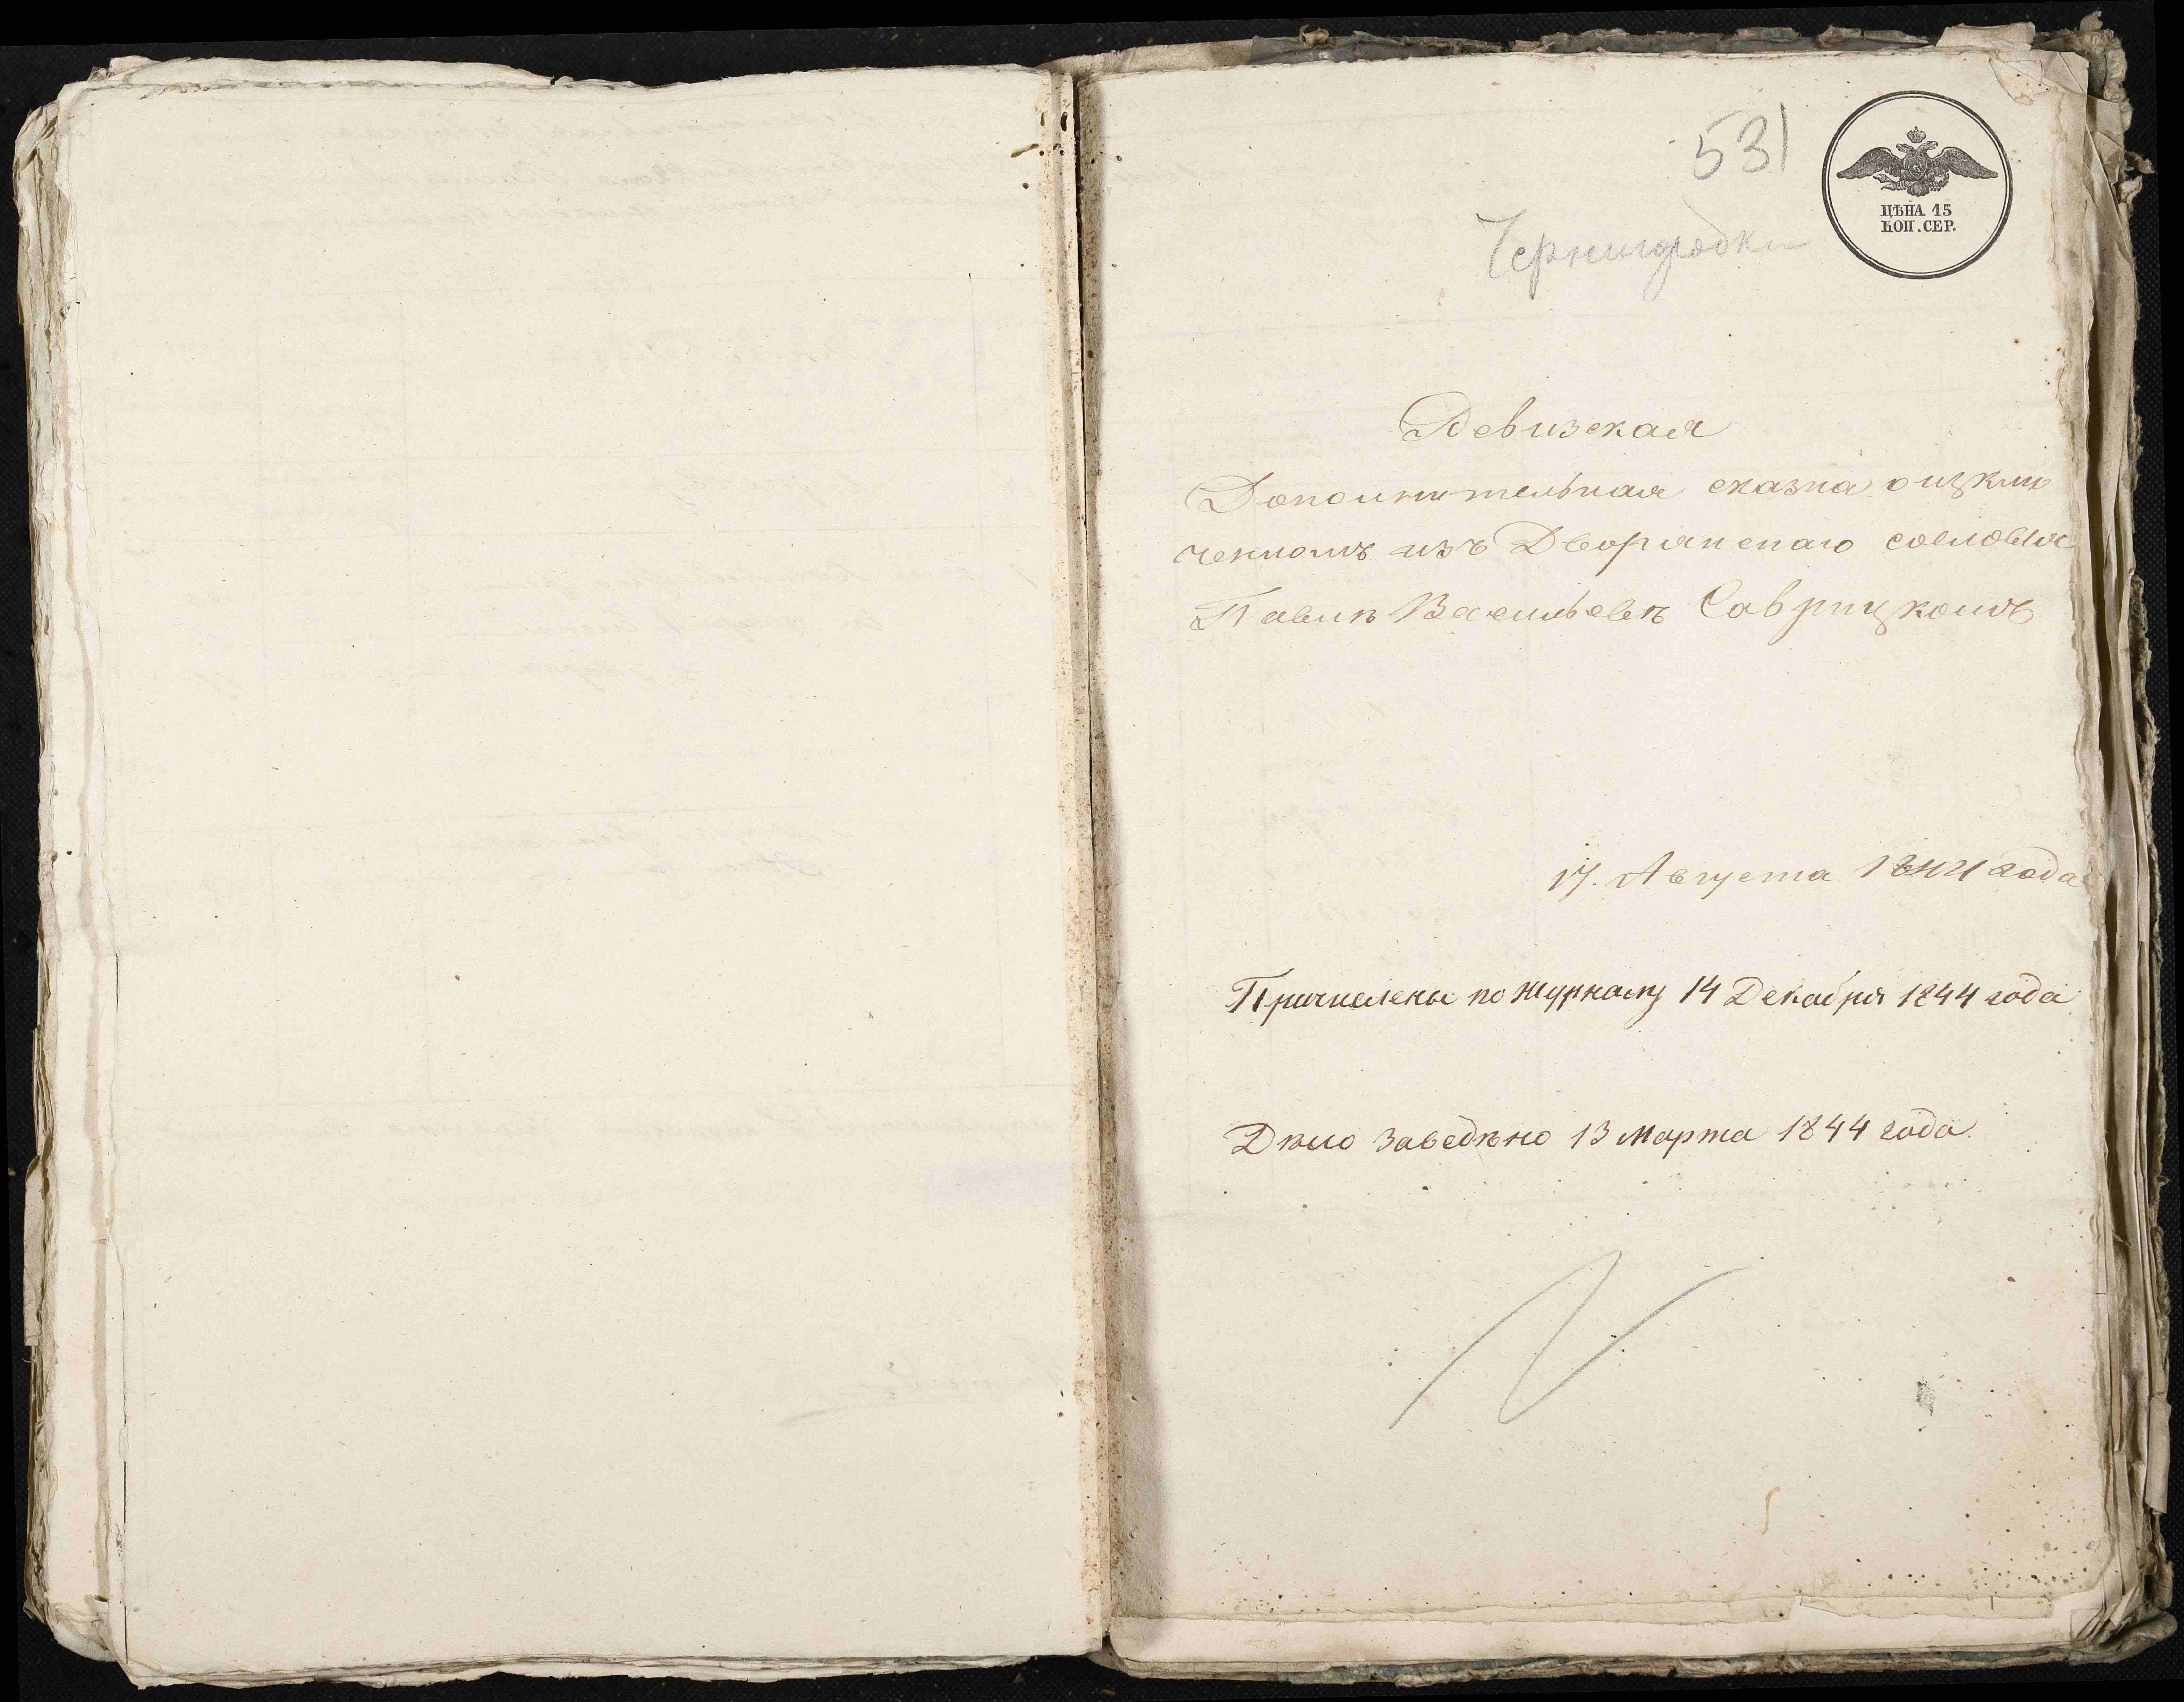 531
ЦѢНА 15
КОП. СЕР.
Чернигородки
Ревизская
Дополнительная сказка о изклю
ченномъ изъ Дворянскаго сословія
Павлѣ Васильевѣ Савруцкомъ
17. Августа 1844 года
Причислены по журналу 14 Декабря 1844 года
Дѣло заведѣно 13 Марта 1844 года.